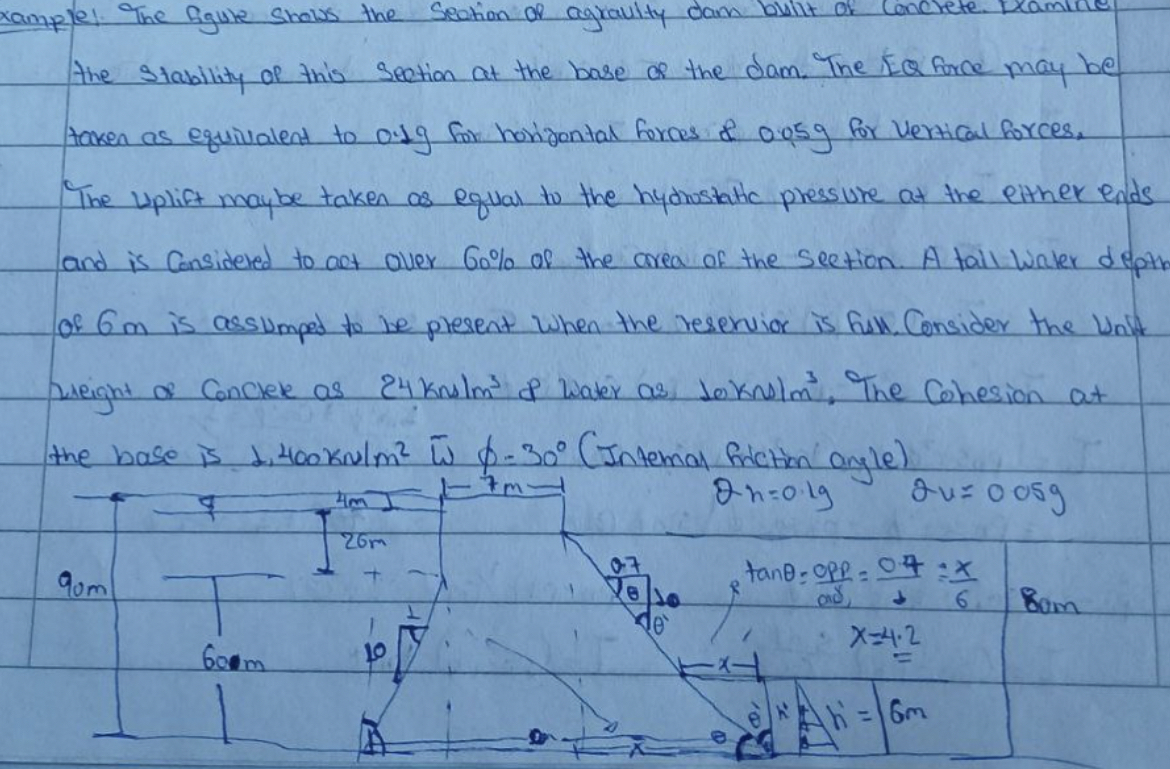 xample! The figure shows the Section of agravity dam built of Concrete. Examine
the Stability of this Section at the base of the dam. The EQ force may be
taken as equivalent to 0.1g for horizontal forces & 0.05g for Vertical forces.
The Uplift maybe taken as equal to the hydrostatic pressure at the either ends
and is Considered to act over 60% of the area of the Section. A tail Water depth
of 6m is assumped to be present when the reservior is full. Consider the Unit
Weight of Concrete as 24 kN/m³ & Water as 10kN/m³. The Cohesion at
the base is 1,400kN/m² w̄ ϕ=30° (Internal friction angle)
7m
∂h=0.1g ∂v=0.05g
4m
26m
90m
60m
1
10
0.7
θ
10
θ
tanθ=opp/adj=0.7/1=x/6
x=4.2
80m
x
θ
h'=6m
A
x
θ